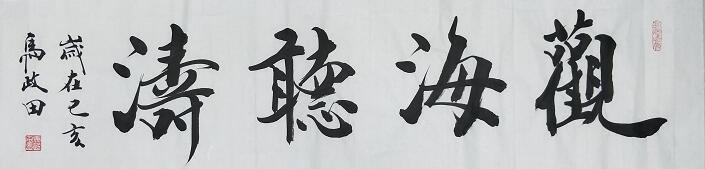 觀海聽濤
歲在己亥
馬政田